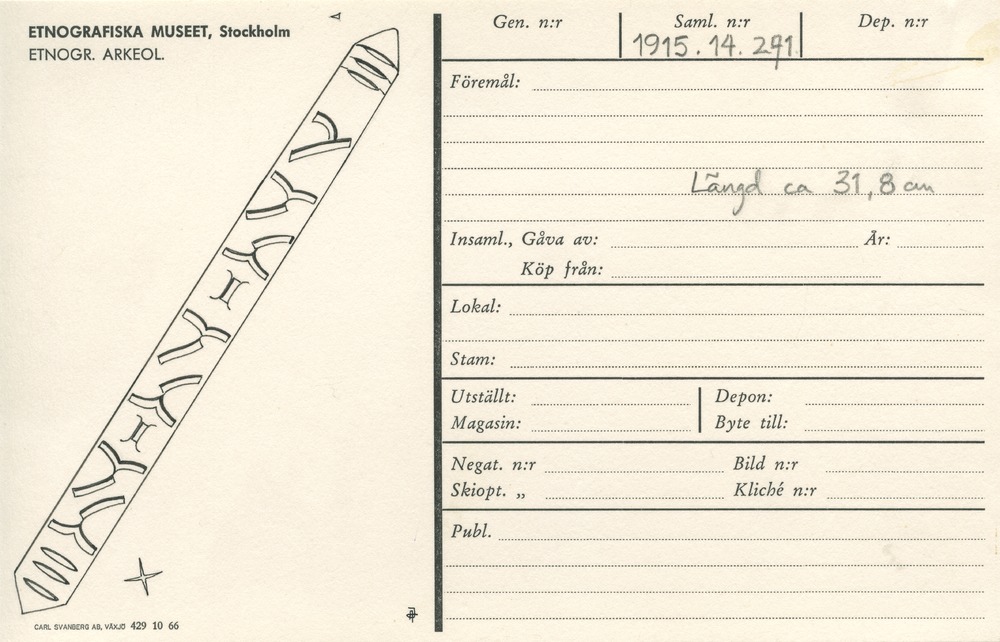 ETNOGRAFISKA MUSEET, Stockholm
ETNOGR. ARKEOL.
CARL SVANBERG AB, VÄXJÖ 429 10 66
Gen. n:r Saml. n:r Dep. n:r
1915.14.291.
Föremål:
Längd ca 31,8 cm
Insaml., Gåva av: År:
Köp från:
Lokal:
Stam:
Utställt: Depon:
Magasin: Byte till:
Negat. n:r Bild n:r
Skiopt. „ Kliché n:r
Publ.